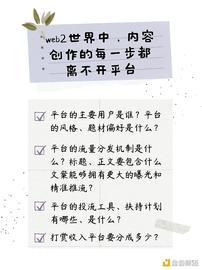 web2世界中，内容
创作的每一步都
离不开平台
平台的主要用户是谁？平台
的风格、题材偏好是什么？
平台的流量分发机制是什
么？标题、正文要包含什么
文案能够拥有更大的曝光和
精准推流？
平台的投流工具、扶持计划
有哪些、是什么？
打赏收入平台要分成多少？
金色财经